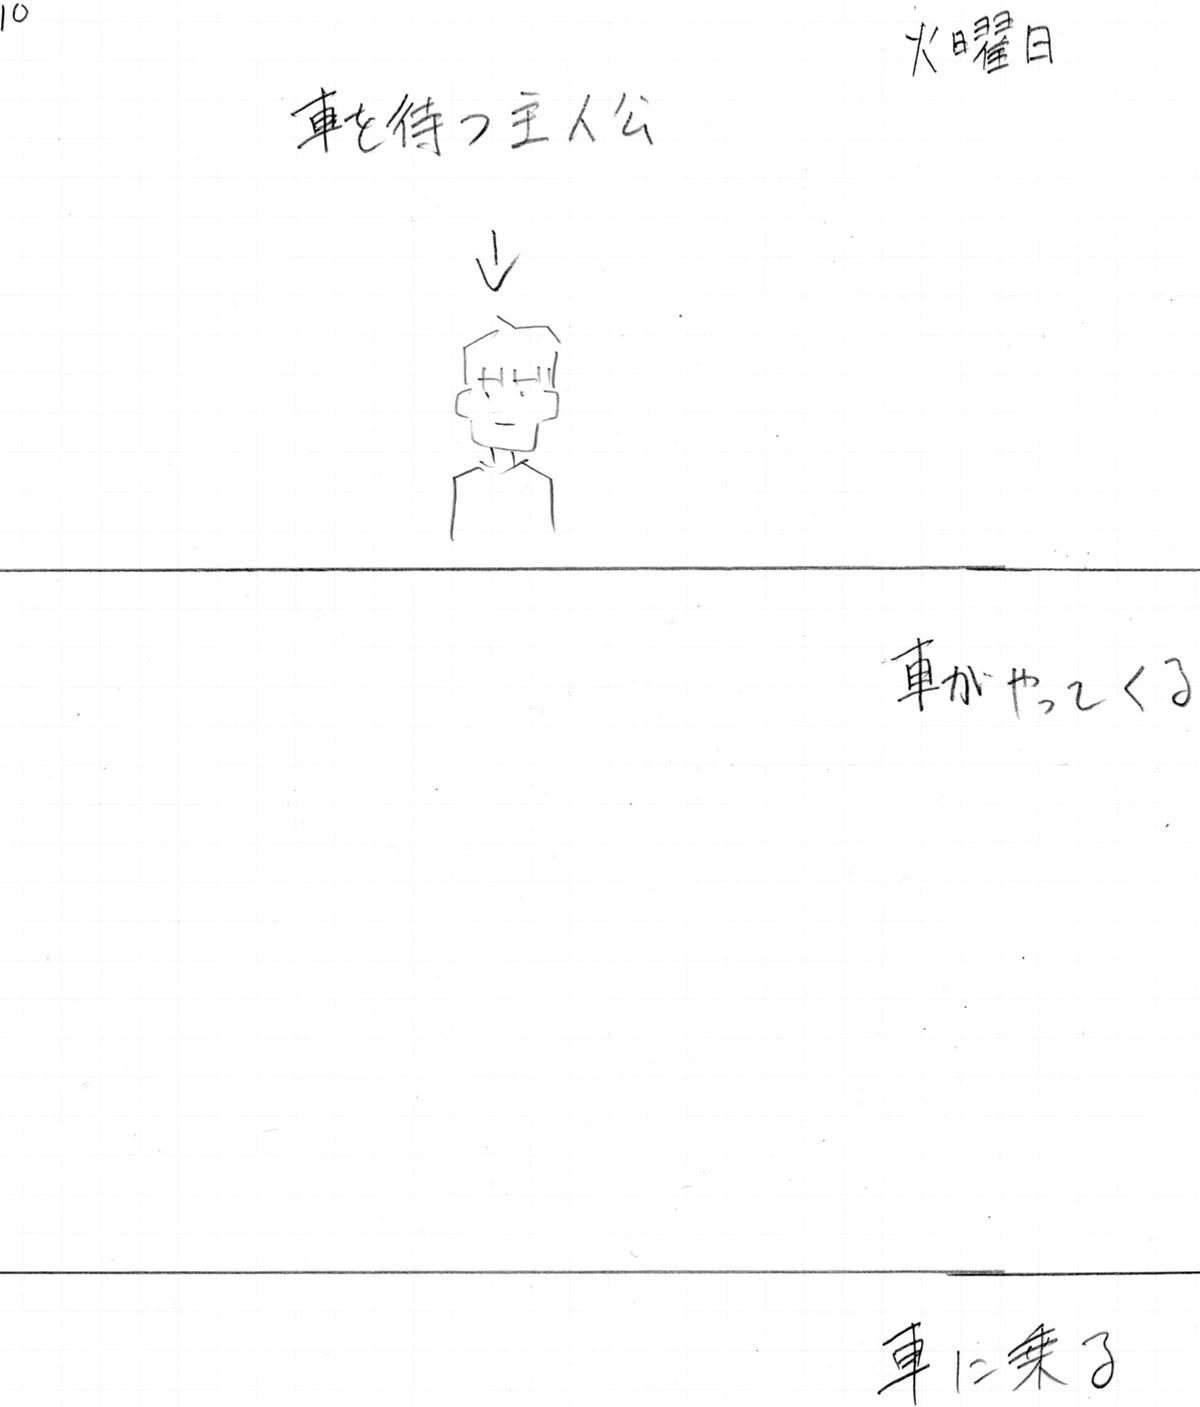 10
火曜日
車を待つ主人公
車がやってくる
車に乗る